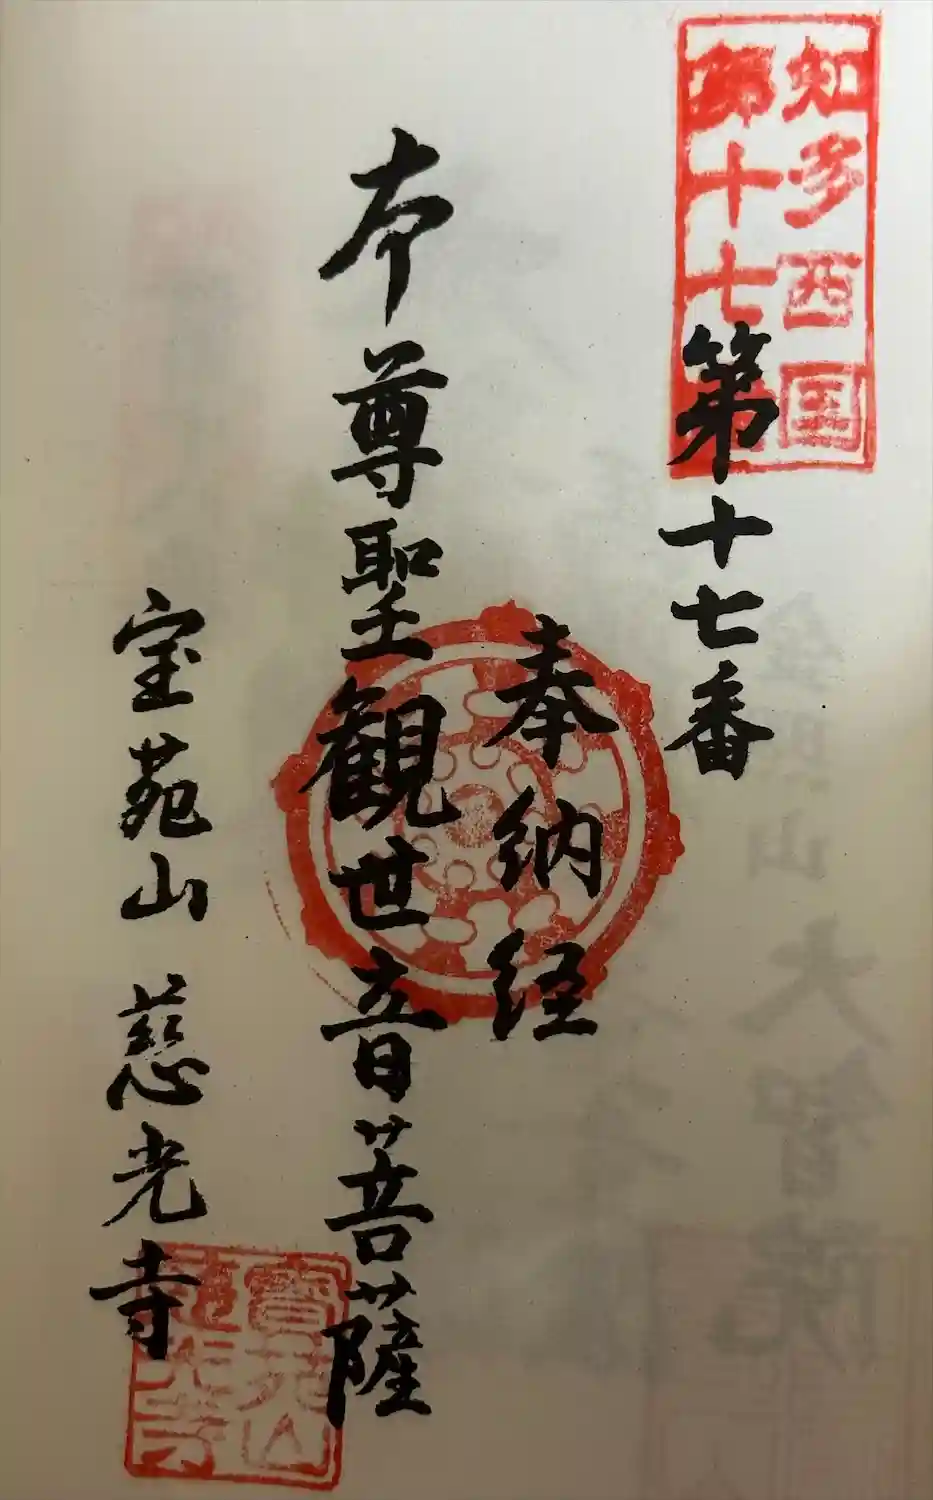 知多西国
第十七番
第十七番
奉納経
本尊聖観世音菩薩
宝苑山 慈光寺
寳苑山
慈光寺
金照山 大智院